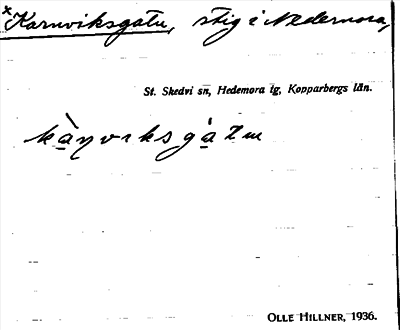 ×Karnviksgatu, stig i Nedernora,
St. Skedvi sn, Hedemora lg, Kopparbergs län.
kàṇviksgàtu
OLLE HILLNER, 1936.